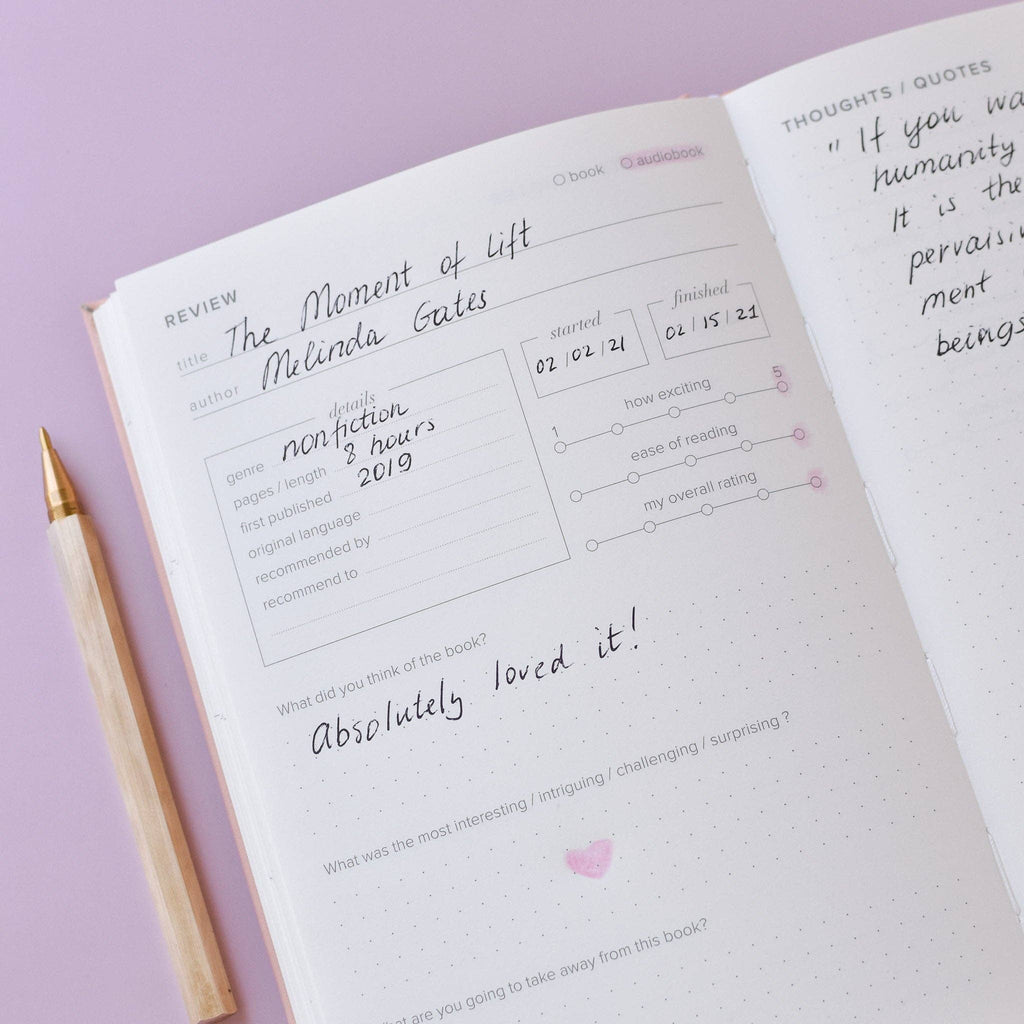 book audiobook
REVIEW
title The Moment of Lift
author Melinda Gates
details
genre nonfiction
pages / length 8 hours
first published 2019
original language
recommended by
recommend to
started
02 / 02 / 21
finished
02 / 15 / 21
how exciting
1 5
ease of reading
my overall rating
What did you think of the book?
Absolutely loved it!
What was the most interesting / intriguing / challenging / surprising ?
are you going to take away from this book?
THOUGHTS / QUOTES
" If you wa
humanity
It is the
pervaisiv
ment
beings